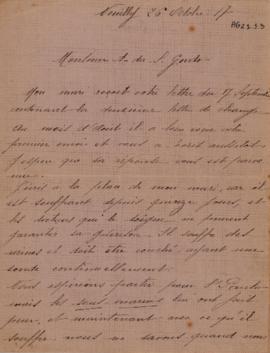 Neuilly 26 Octobre 17
A6233
Monsieur A. de S.
Mon mari reçoit votre lettre du 17 Septembre
contenant la lettre de change
du mois d'Août il a bien reçu votre
premier envoi et vous a écrit
J'espère que sa réponse vous est parve
nue.
J'écris à la place de mon mari, car il
est souffrant depuis quinze jours, et
les docteurs qui le soignent ne peuvent
garantir sa guérison. Il souffre des
et doit être couché ayant une
sonde continuellement.
Nous espérions partir pour
mais les sous-marins lui ont fait
peur, et maintenant avec ce qu'il
souffre, nous ne savons quand nous